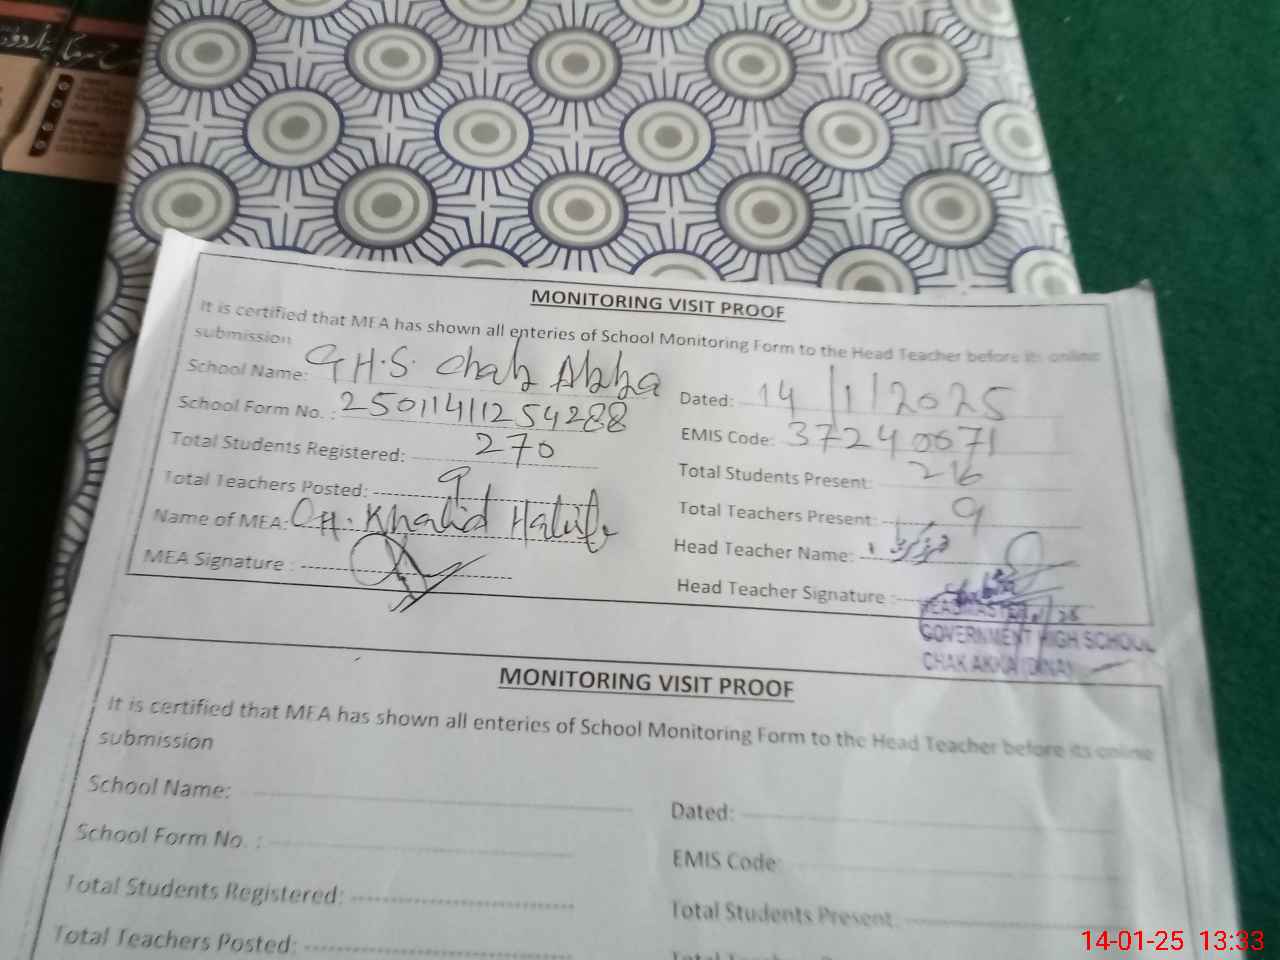 MONITORING VISIT PROOF
It is certified that MEA has shown all enteries of School Monitoring Form to the Head Teacher before its online
submission
School Name: G.H.S. Chak Akka
Dated: 14/1/2025
School Form No. : 25011411254288
EMIS Code: 37240071
Total Students Registered: 270
Total Students Present: 216
Total Teachers Posted: 9
Total Teachers Present: 9
Name of MEA: CH. Khalid
Head Teacher Name:
MEA Signature :
Head Teacher Signature :
HEADMASTER
GOVERNMENT HIGH SCHOOL
CHAK AKKA (DINA)
MONITORING VISIT PROOF
It is certified that MEA has shown all enteries of School Monitoring Form to the Head Teacher before its online
submission
School Name:
Dated:
School Form No. :
EMIS Code:
Total Students Registered:
Total Students Present:
Total Teachers Posted:
14-01-25 13:33